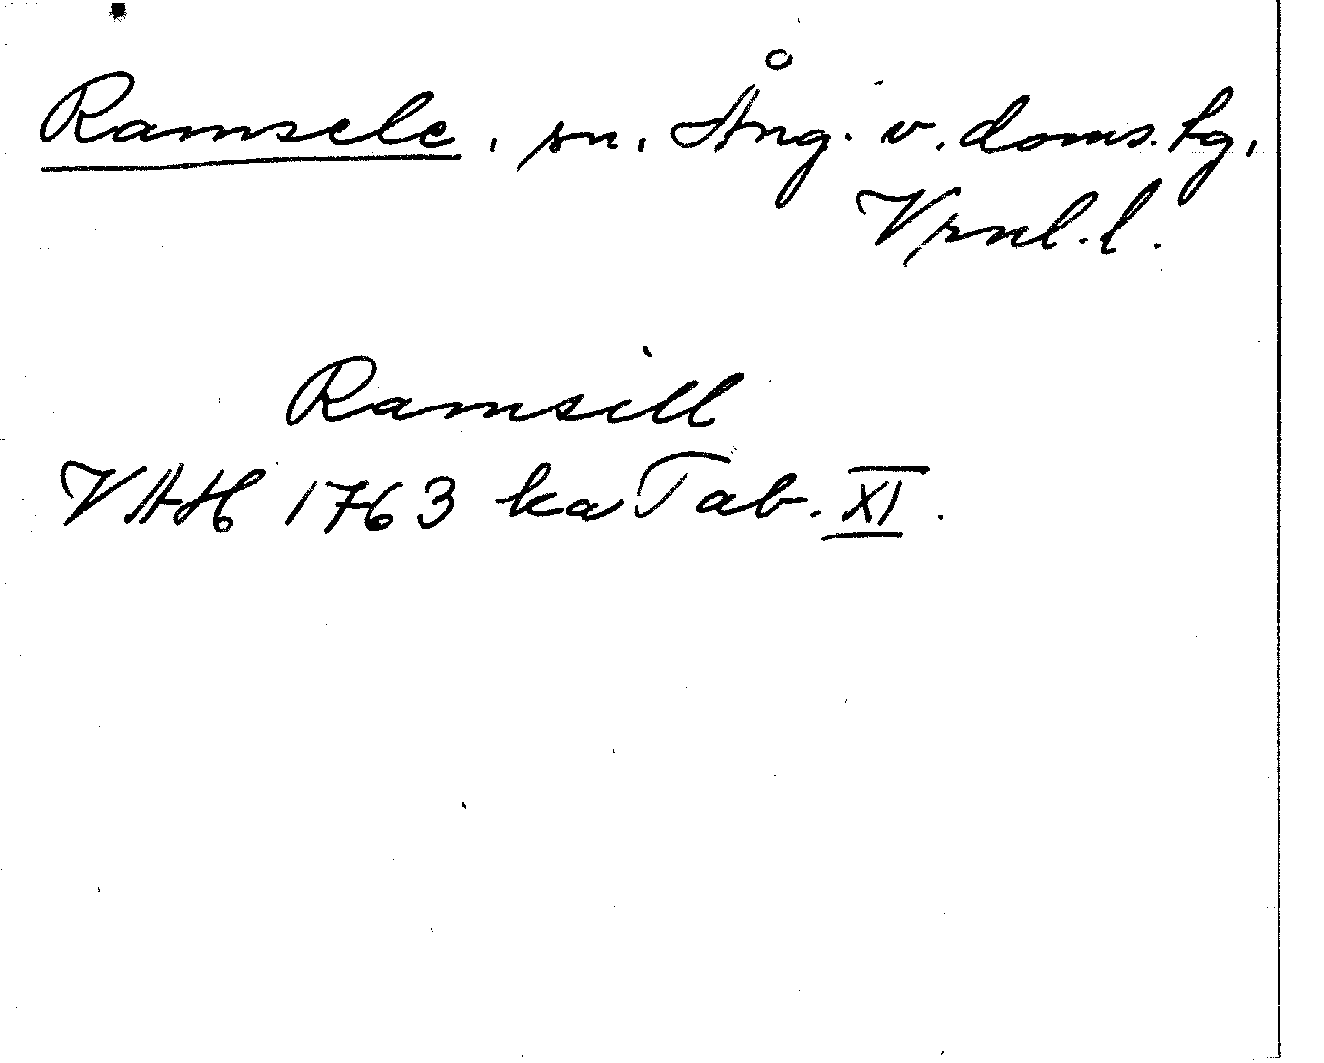 Ramsele, sn, Ång. v. doms.tg,
Vrnl.l.
Ramsill
VAH 1763 ka Tab. XI.